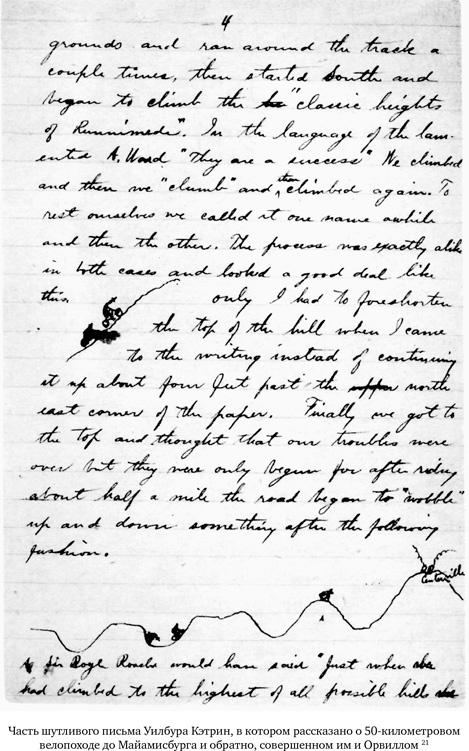 4
grounds and ran around the track a
couple times, then started South and
began to climb the "classic heights
of Runnimede". In the language of the lam-
ented A. Ward "They are a success" We climbed
and then we "clumb" and then climbed again. To
rest ourselves we called it one name awhile
and then the other. The process was exactly alike
in both cases and looked a good deal like
this. only I had to foreshorten
the top of the hill when I came
to the writing instead of continuing
it up about four feet past the north
east corner of the paper. Finally we got to
the top and thought that our troubles were
over but they were only begun for after riding
about half a mile the road began to "wobble"
up and down something after the following
fashion.
Centerville
Sir Boyle Roache would have said "Just when
had climbed to the highest of all possible hills
Часть шутливого письма Уилбура Кэтрин, в котором рассказано о 50-километровом
велопоходе до Майамисбурга и обратно, совершенном им и Орвиллом 21